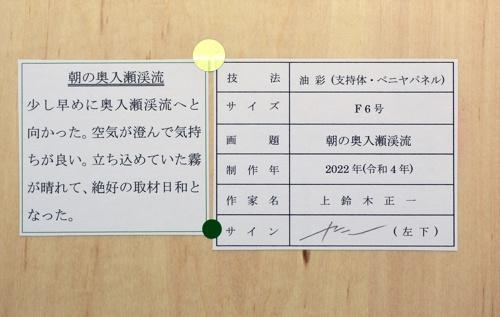 朝の奥入瀬渓流
少し早めに奥入瀬渓流へと
向かった。空気が澄んで気持
ちが良い。立ち込めていた霧
が晴れて、絶好の取材日和と
なった。
技法 油彩(支持体・ベニヤパネル)
サイズ F6号
画題 朝の奥入瀬渓流
制作年 2022年(令和4年)
作家名 上鈴木正一
サイン (左下)